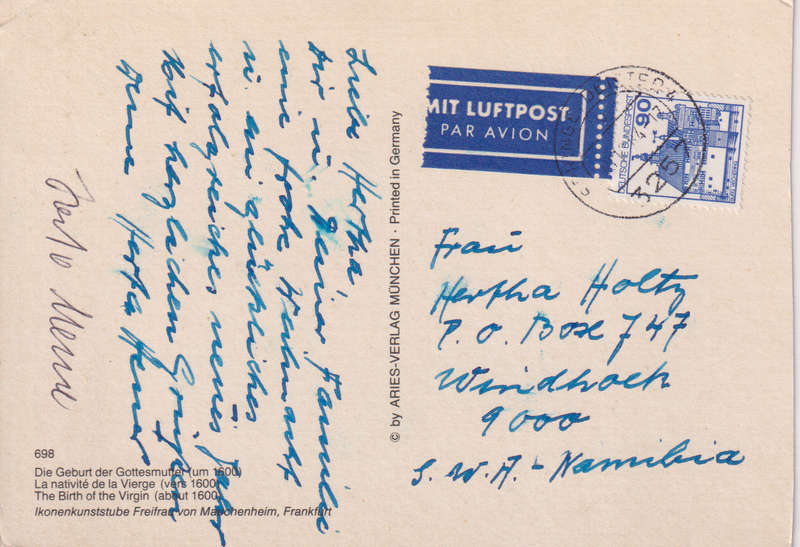 Liebe Hertha,
Dir u. Deiner Familie
eine frohe Weihnacht
u. ein glückliches
erfolgreiches neues Jahr
mit herzlichen Grüßen
Deine Herta
MIT LUFTPOST
PAR AVION
DEUTSCHE BUNDESPOST
90
325
Frau
Hertha Holtz
P. O. Box 747
Windhoek
9000
S. W. A. - Namibia
© by ARIES-VERLAG MÜNCHEN · Printed in Germany
698
Die Geburt der Gottesmutter (um 1600)
La nativité de la Vierge (vers 1600)
The Birth of the Virgin (about 1600)
Ikonenkunststube Freifrau von Mauchenheim, Frankfurt